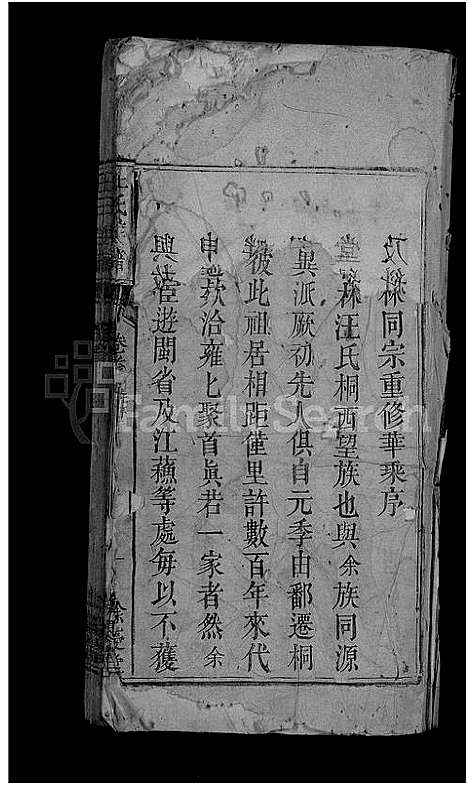 及綝同宗重修華乘序
綝汪氏桐西望族也與余族同源
異派厥初先人俱自元季由鄱遷桐
彼此祖居相距僅里許數百年來代
申歡洽雍匕聚首眞若一家者然余
與宦遊閩省及江蘇等處每以不獲
氏
卷
FamilySearch